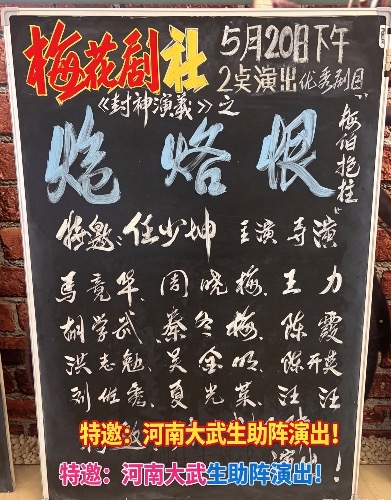 梅花剧社
5月20日下午
2点演出优秀剧目
《封神演义》之
炮烙恨
"梅伯抱柱"
特邀:任少坤 主演导演
马竟华、周晓梅、王力
胡学武、秦冬梅、陈霞
洪志勉、吴金明、陈开英
刘佐秀、夏光荣、汪汪
特邀:河南大武生助阵演出!
特邀:河南大武生助阵演出!